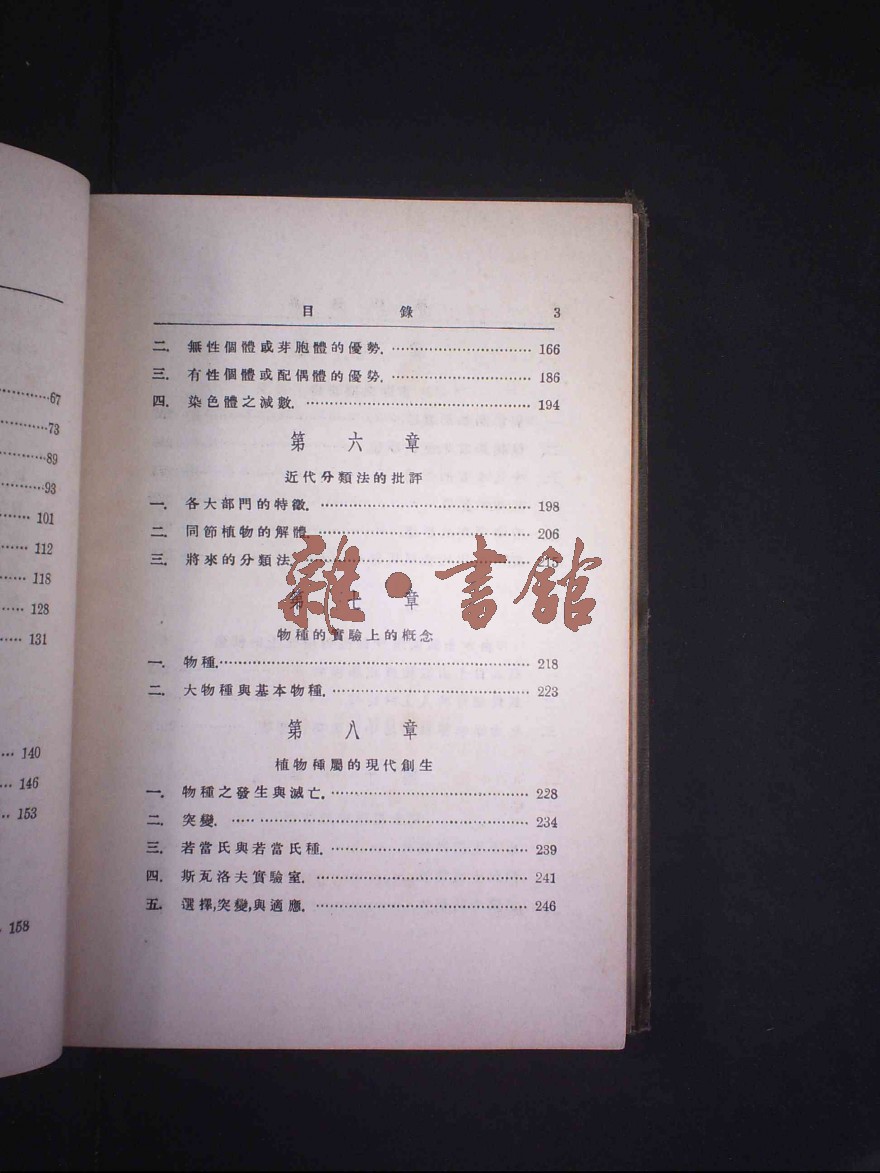 67
73
89
93
101
112
118
128
131
140
146
153
158
目 錄 3
二. 無性個體或芽胞體的優勢. 166
三. 有性個體或配偶體的優勢. 186
四. 染色體之減數. 194
第 六 章
近代分類法的批評
一. 各大部門的特徵. 198
二. 同節植物的解體 206
三. 將來的分類法. 215
雜•書館
第 七 章
物種的實驗上的概念
一. 物種. 218
二. 大物種與基本物種. 223
第 八 章
植物種屬的現代創生
一. 物種之發生與滅亡. 228
二. 突變. 234
三. 若當氏與若當氏種. 239
四. 斯瓦洛夫實驗室. 241
五. 選擇,突變,與適應. 246